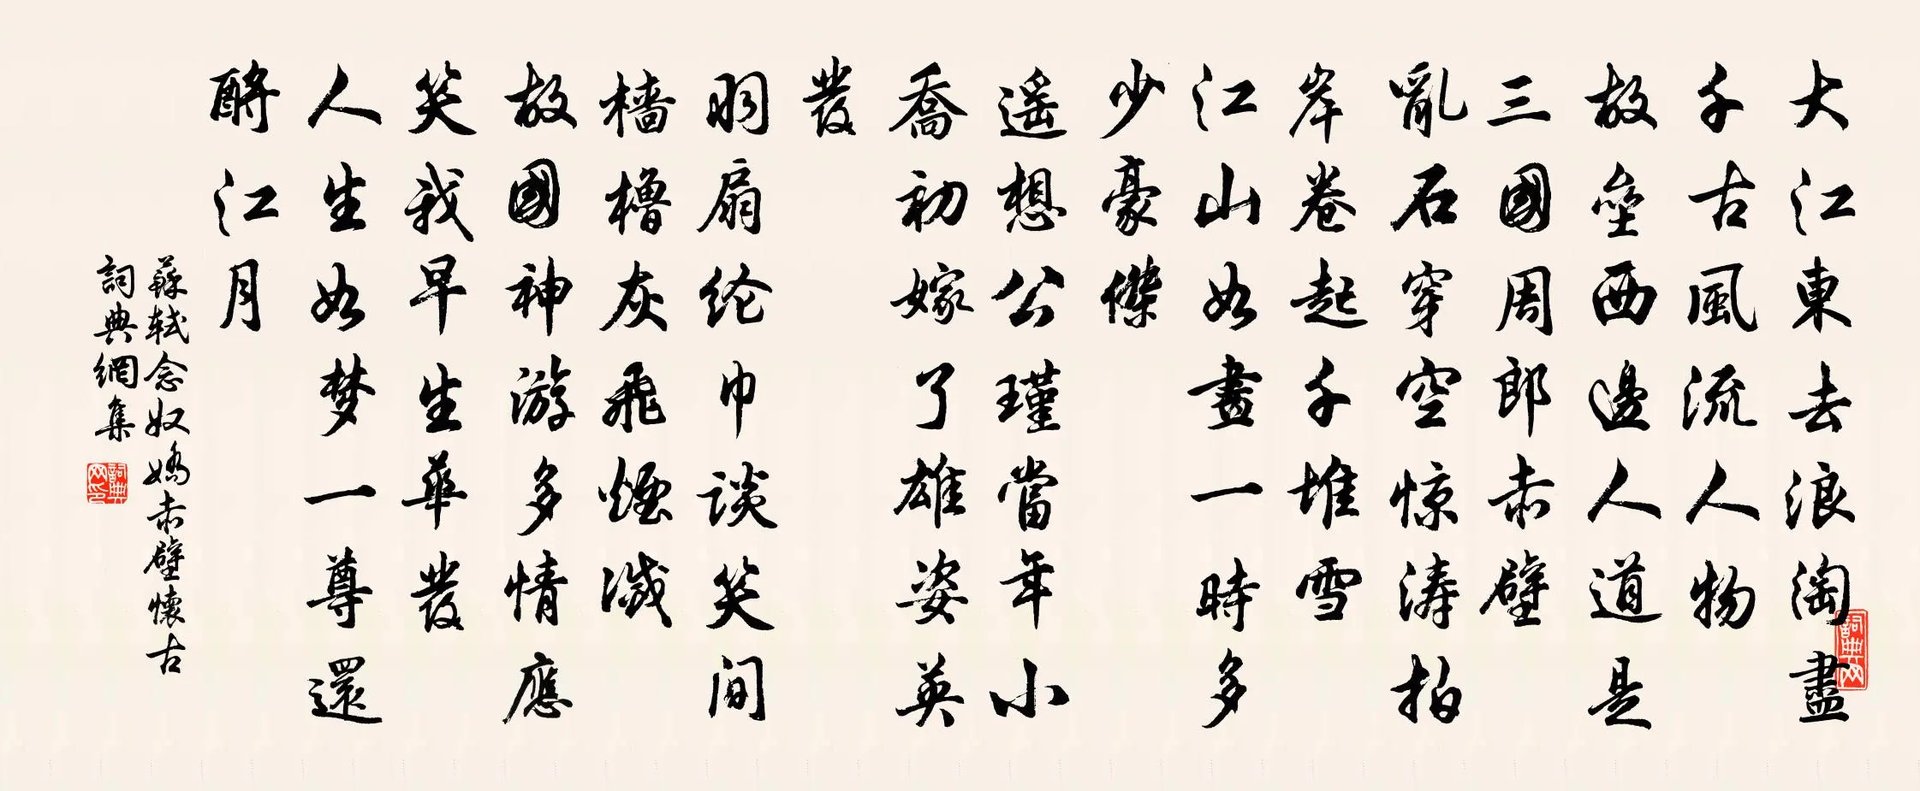 大江東去浪淘盡
千古風流人物
故壘西邊人人道是
三國周郎赤壁
亂石穿空惊涛拍
岸卷起千堆雪
江山如畫一時多
少豪傑
遥想公瑾當年小
喬初嫁了雄姿英
發
羽扇纶巾談笑间
檣櫓灰飛煙滅
故國神游多情應
笑我早生華發
人生如梦一尊還
酹江月
蘇軾念奴嬌赤壁懷古
詞典網集
詞典网印
詞典网